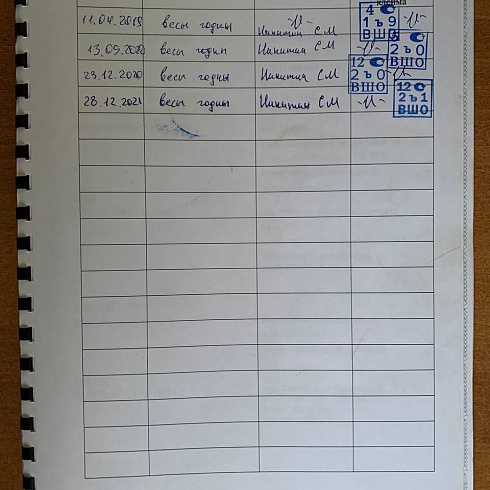 клейма
11.04.2019 весы годны Никитин СМ -//- 4 1 ъ 9 ВШО
13.09.2020 весы годны Никитин СМ -//- 2 ъ 0 ВШО
23.12.2020 весы годны Никитин СМ -//- 12 2 ъ 0 ВШО
28.12.2021 весы годны Никитин СМ -//- 12 2 ъ 1 ВШО